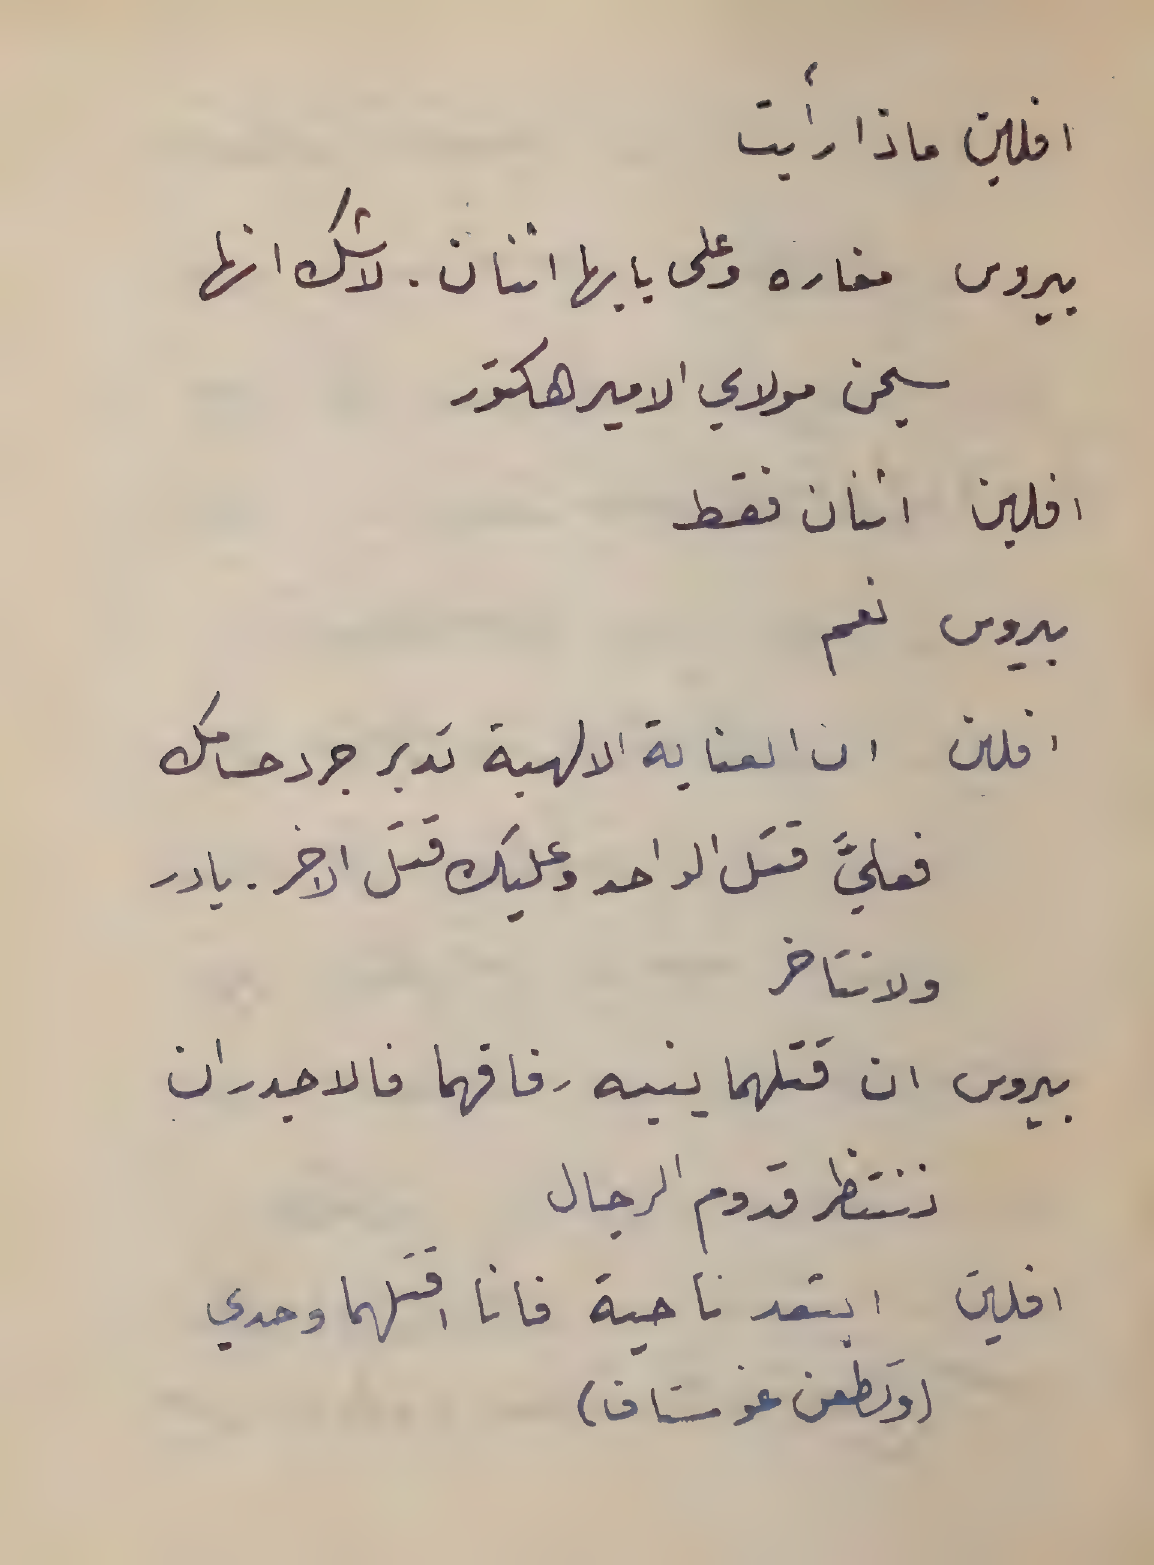 افلين ماذا رأيت
بيروس مغاره وعلى بابها اثنان . لاشك انها
سجن مولاي الامير هكتور
افلين اثنان فقط
بيروس نعم
افلين ان العناية الالهية تدبر جرد حسامك
فعليَّ قتل الواحد وعليك قتل الاخر . بادر
ولا تتاخر
بيروس ان قتلهما ينبه رفاقهما فالاجدر ان
ننتظر قدوم الرجال
افلين ابتعد ناحية فانا اقتلهما وحدي
(وتطعن غوستاف)